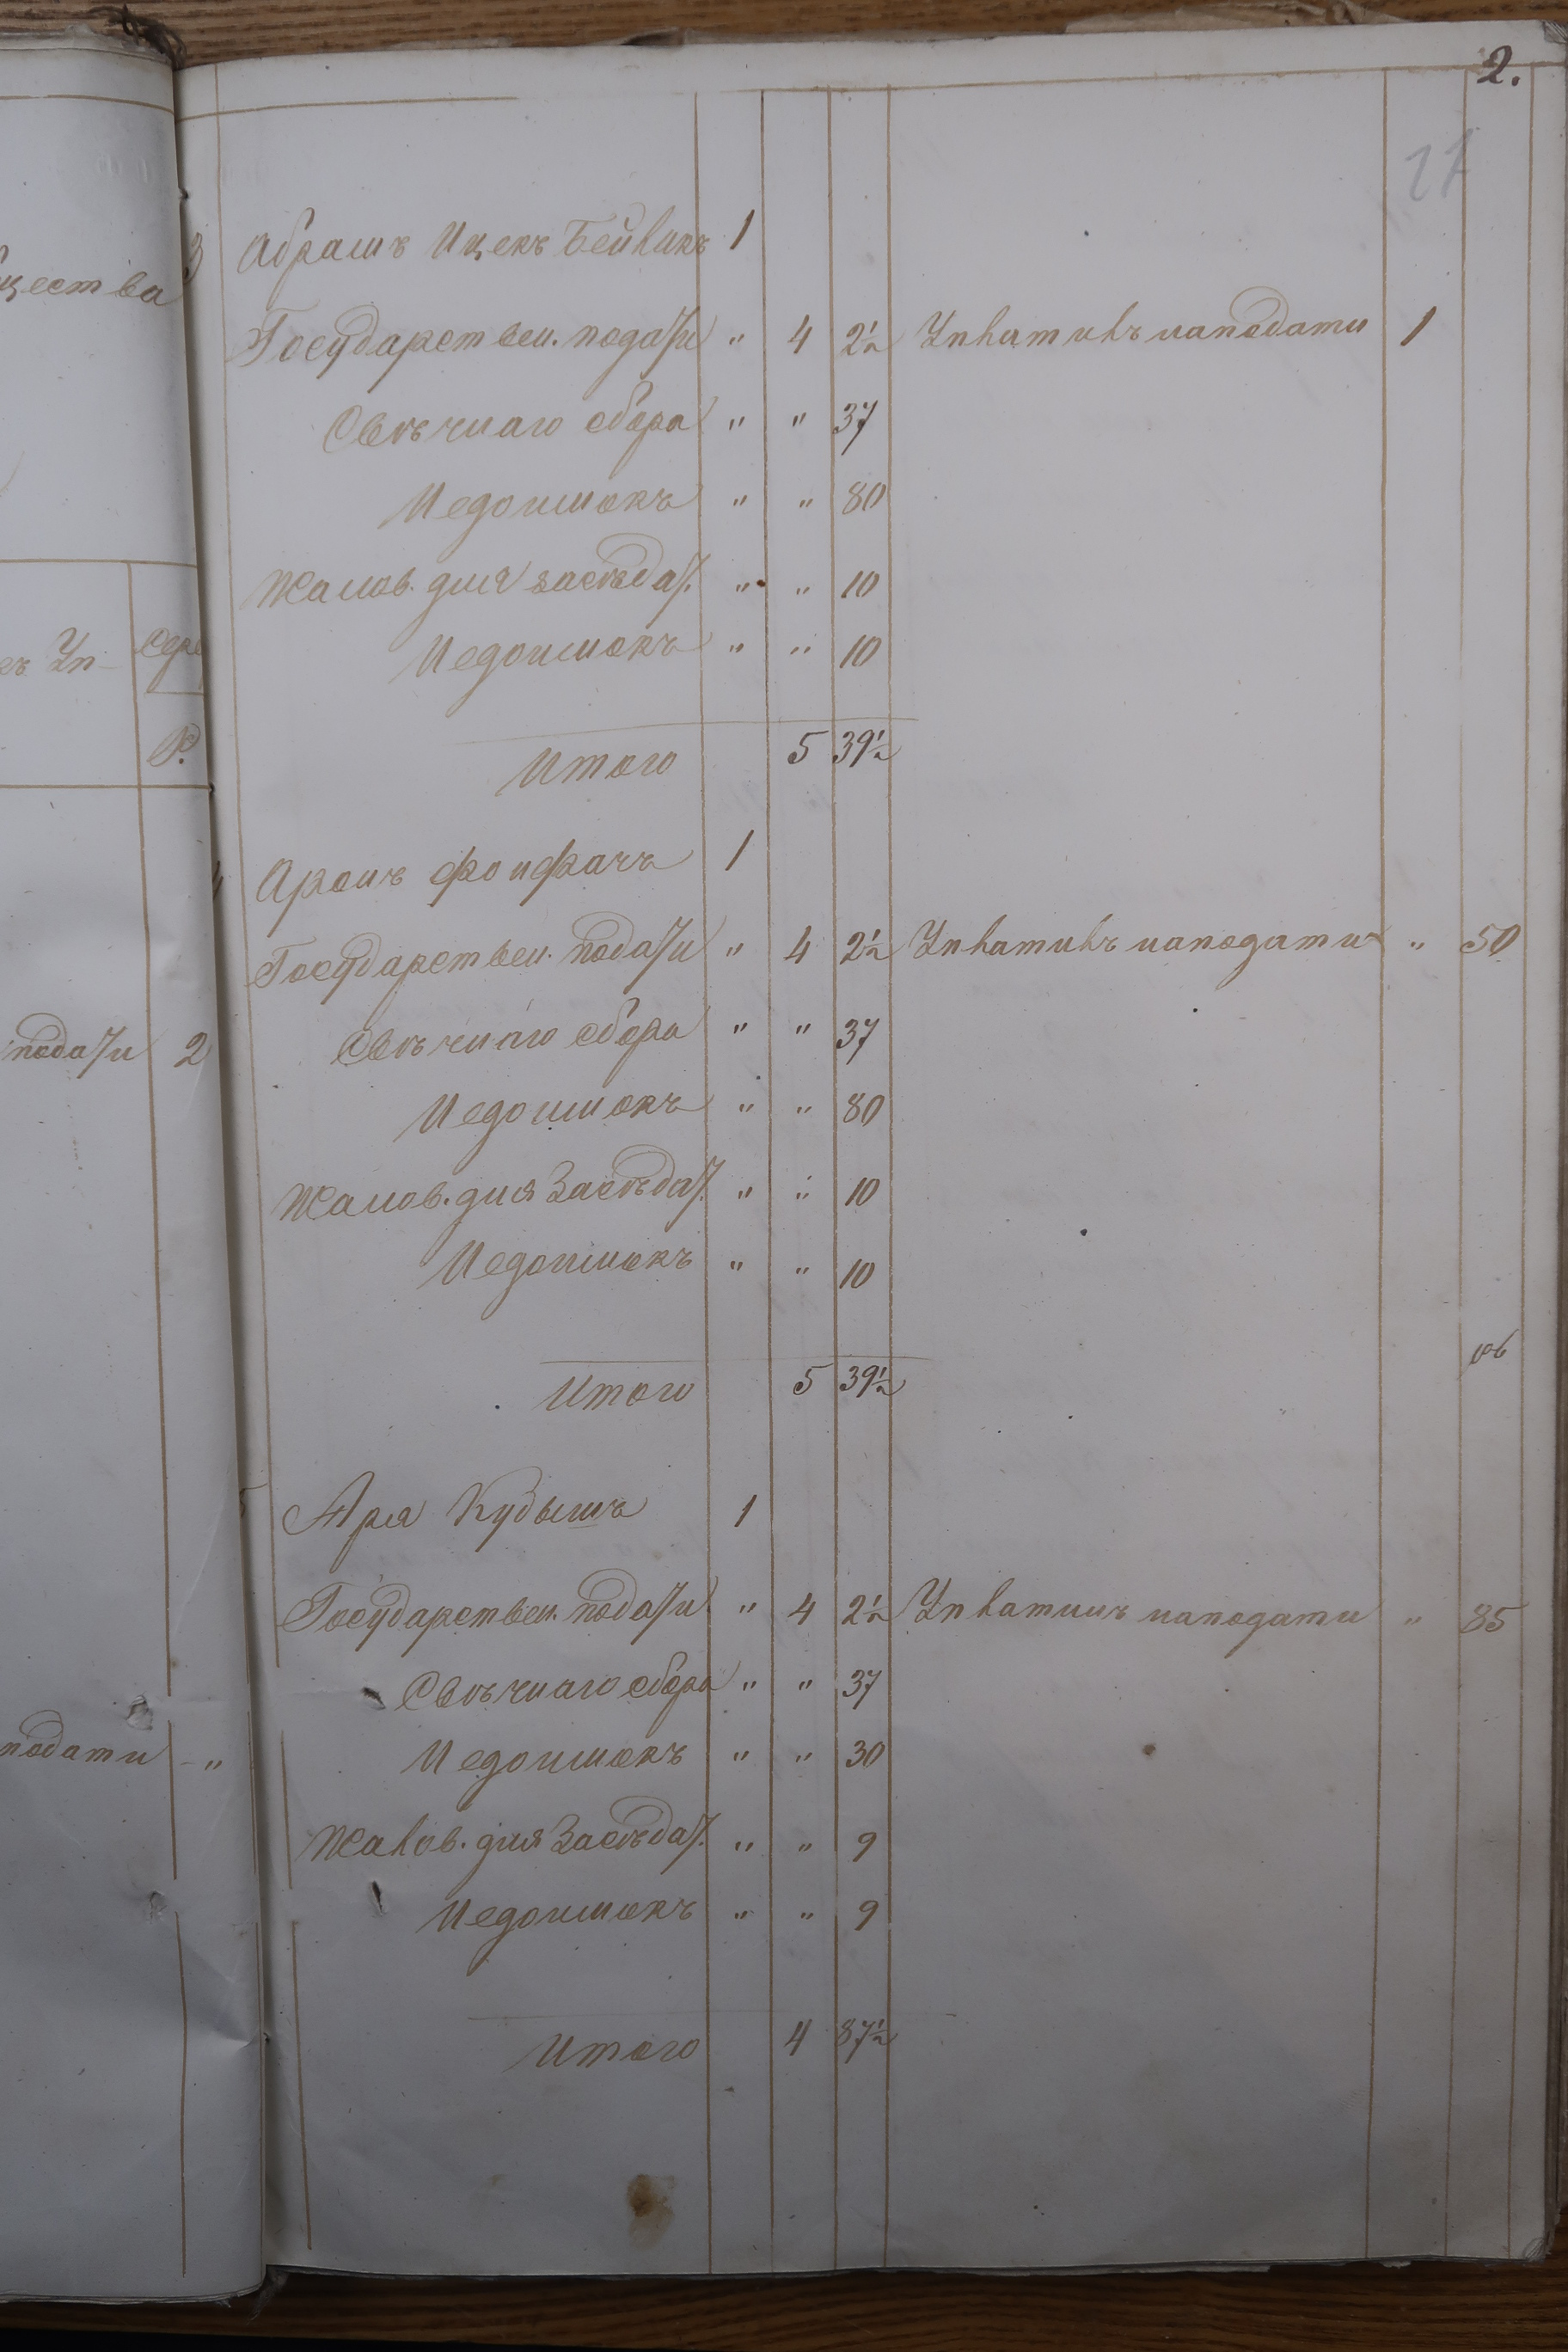 2.
27
щества
3 Абрамъ Ицекъ Бейлихъ 1
Государствен. подати " 4 2½ Уплатилъ наподати 1
Свѣчнаго сбора " " 37
Недоимокъ " " 80
Жалов. для засѣдат. " " 10
Недоимокъ " " 10
Итого 5 39½
4 Аронъ Фонфачъ 1
Государствен. подати " 4 2½ Уплатилъ наподати " 50
Свѣчнаго сбора " " 37
Недоимокъ " " 80
Жалов. для Засѣдат. " " 10
Недоимокъ " " 10
Итого 5 39½
5 Аря Кудышъ 1
Государствен. подати " 4 2½ Уплатилъ наподати " 85
Свѣчнаго сбора " " 37
Недоимокъ " " 30
Жалов. для Засѣдат. " " 9
Недоимокъ " " 9
Итого 4 87½
Уп-
Р.
подати 2
подати - "